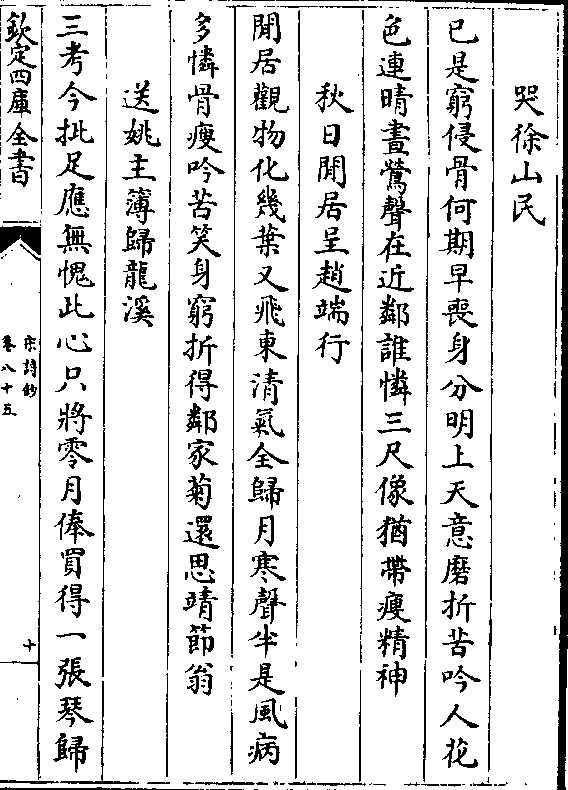 哭徐山民
已是窮侵骨何期早喪身分明上天意磨折苦吟人花
色連晴晝鶯聲在近鄰誰憐三尺像猶帶瘦精神
秋日閒居呈趙端行
閒居觀物化幾葉又飛東清氣全歸月寒聲半是風病
多憐骨瘦吟苦笑身窮折得鄰家菊還思靖節翁
送姚主簿歸龍溪
三考今批足應無愧此心只將零月俸買得一張琴歸
欽定四庫全書
宋詩鈔
卷八十五
十